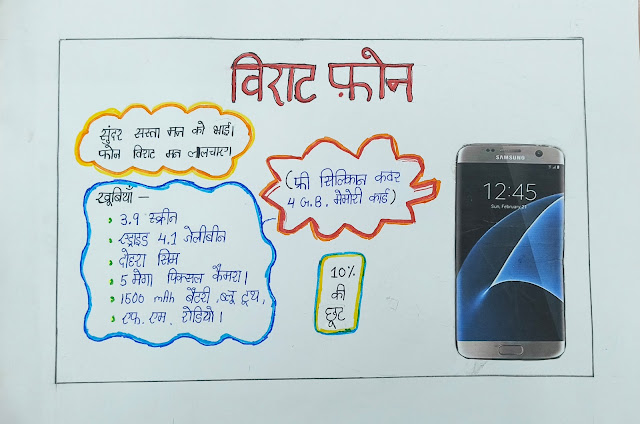 विराट फ़ोन
सुंदर सस्ता मन को भाई।
फोन विराट मन ललचाए।
खूबियाँ –
3.9 स्क्रीन
एड्राइड 4.1 जेलीबीन
दोहरा सिम
5 मेगा पिक्सल कैमरा।
1500 mAh बैटरी, ब्लू टूथ,
एफ. एम. रेडियो।
(फ्री सिलिकान कवर
4 G.B. मेमोरी कार्ड)
10%
की
छूट
SAMSUNG
12:45
Sun, February 21